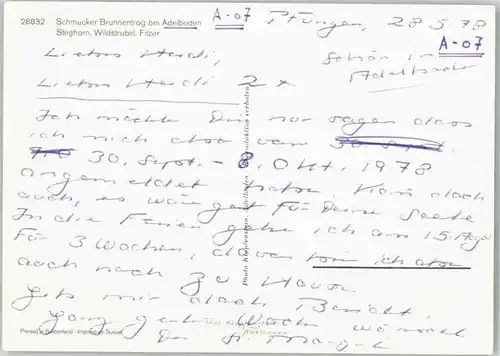 28832 Schmucker Brunnentrog bei Adelboden
Steghorn, Wildstrubel, Fitzer
A-07
Pfungen, 28.5.78
A-07
Schön in
Adelboden
Liebes Heidi,
Liebes Heidi 2x
Ich möchte Dir nur sagen dass
ich mich also vom 30. Sept.
30. Sept. - 8. Okt. 1978
angemeldet habe. Komm doch
auch, es wäre gut für Deine Seele
In die Ferien gehe ich am 15. Aug.
für 3 Wochen, davon bin ich aber
auch noch zu Hause.
Gib mir doch Bericht.
ganz gute Woche wünscht
Dir
Photo Klopfenstein, Adelboden Reproduktion verboten
Printed in Switzerland - Imprimé en Suisse